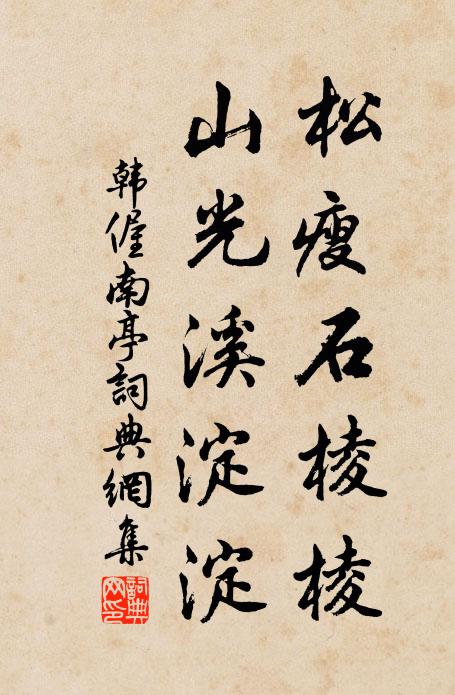 松瘦石棱棱
山光溪淀淀
韩偓南亭詞典網集
詞典网印